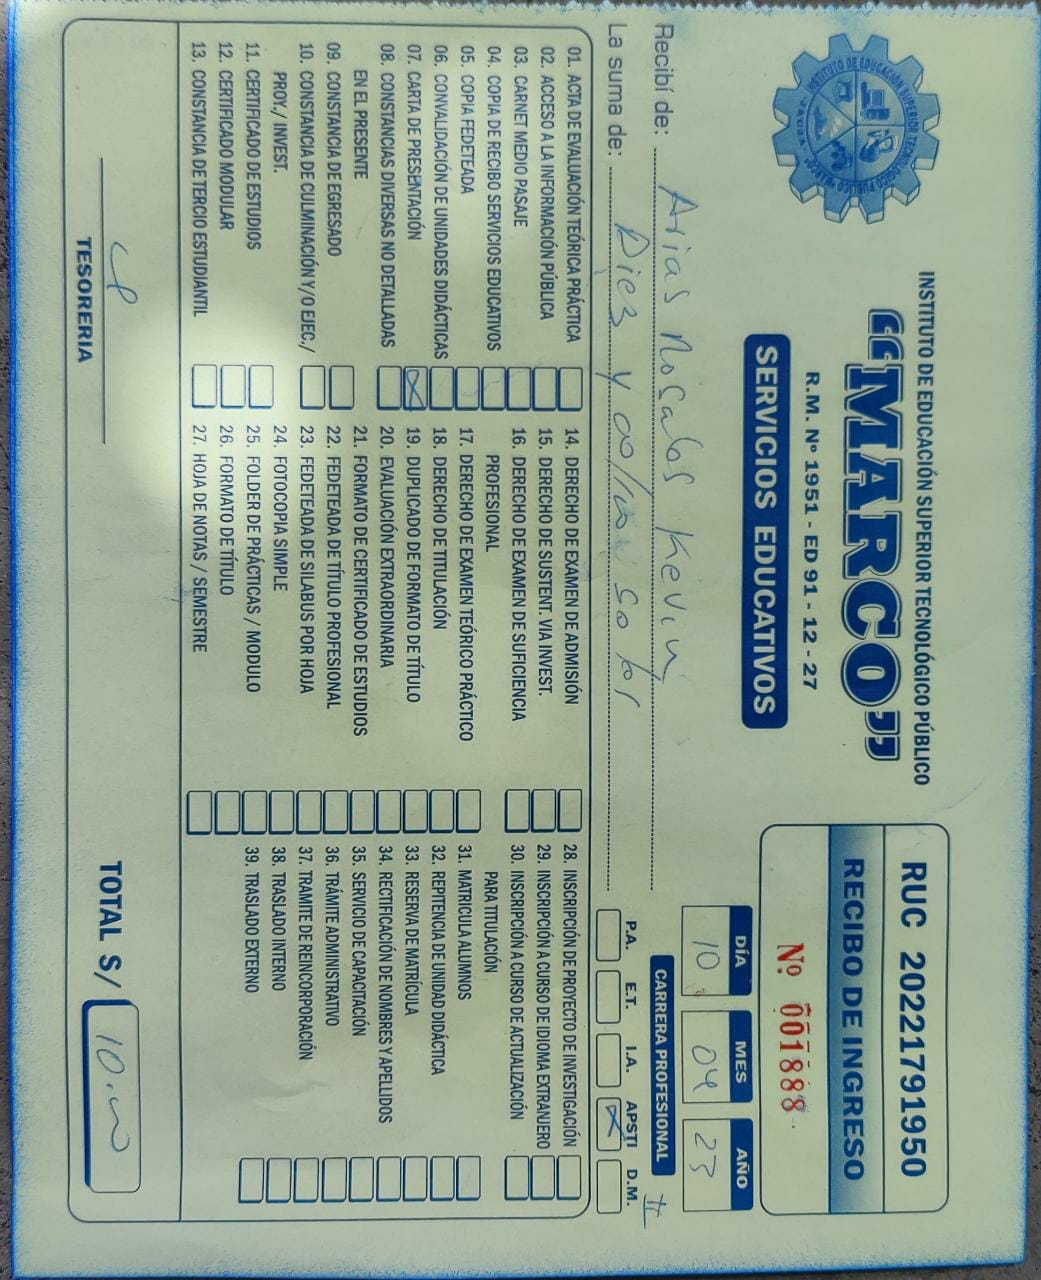 INSTITUTO DE EDUCACIÓN SUPERIOR TECNOLÓGICO PÚBLICO
"MARCO"
R.M. Nº 1951 - ED 91 - 12 - 27
SERVICIOS EDUCATIVOS
INSTITUTO DE EDUCACIÓN SUPERIOR TECNOLÓGICO PÚBLICO "MARCO"
JAUJA
RUC 20221791950
RECIBO DE INGRESO
Nº 001888
DÍA MES AÑO
10 04 23
CARRERA PROFESIONAL II
P.A. E.T. I.A. APSTI D.M.
X
Recibí de: Arias Rosales Kevin
La suma de: Diez y 00/100 soles
01. ACTA DE EVALUACIÓN TEÓRICA PRÁCTICA
02. ACCESO A LA INFORMACIÓN PÚBLICA
03. CARNET MEDIO PASAJE
04. COPIA DE RECIBO SERVICIOS EDUCATIVOS
05. COPIA FEDETEADA
06. CONVALIDACIÓN DE UNIDADES DIDÁCTICAS
07. CARTA DE PRESENTACIÓN X
08. CONSTANCIAS DIVERSAS NO DETALLADAS
EN EL PRESENTE
09. CONSTANCIA DE EGRESADO
10. CONSTANCIA DE CULMINACIÓN Y/O EJEC./
PROY./ INVEST.
11. CERTIFICADO DE ESTUDIOS
12. CERTIFICADO MODULAR
13. CONSTANCIA DE TERCIO ESTUDIANTIL
14. DERECHO DE EXAMEN DE ADMISIÓN
15. DERECHO DE SUSTENT. VIA INVEST.
16. DERECHO DE EXAMEN DE SUFICIENCIA
PROFESIONAL
17. DERECHO DE EXAMEN TEÓRICO PRÁCTICO
18. DERECHO DE TITULACIÓN
19. DUPLICADO DE FORMATO DE TÍTULO
20. EVALUACIÓN EXTRAORDINARIA
21. FORMATO DE CERTIFICADO DE ESTUDIOS
22. FEDETEADA DE TÍTULO PROFESIONAL
23. FEDETEADA DE SILABUS POR HOJA
24. FOTOCOPIA SIMPLE
25. FOLDER DE PRÁCTICAS / MODULO
26. FORMATO DE TÍTULO
27. HOJA DE NOTAS / SEMESTRE
28. INSCRIPCIÓN DE PROYECTO DE INVESTIGACIÓN
29. INSCRIPCIÓN A CURSO DE IDIOMA EXTRANJERO
30. INSCRIPCIÓN A CURSO DE ACTUALIZACIÓN
PARA TITULACIÓN
31. MATRICULA ALUMNOS
32. REPITENCIA DE UNIDAD DIDÁCTICA
33. RESERVA DE MATRÍCULA
34. RECTIFICACIÓN DE NOMBRES Y APELLIDOS
35. SERVICIO DE CAPACITACIÓN
36. TRÁMITE ADMINISTRATIVO
37. TRAMITE DE REINCORPORACIÓN
38. TRASLADO INTERNO
39. TRASLADO EXTERNO
TESORERIA
TOTAL S/ 10.00